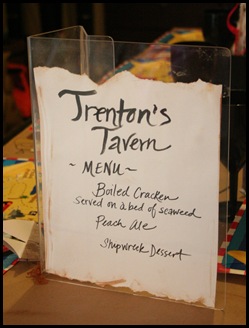 Trenton's
Tavern
~ MENU ~
Boiled Cracken
served on a bed of seaweed
Peach Ale
Shipwreck Dessert